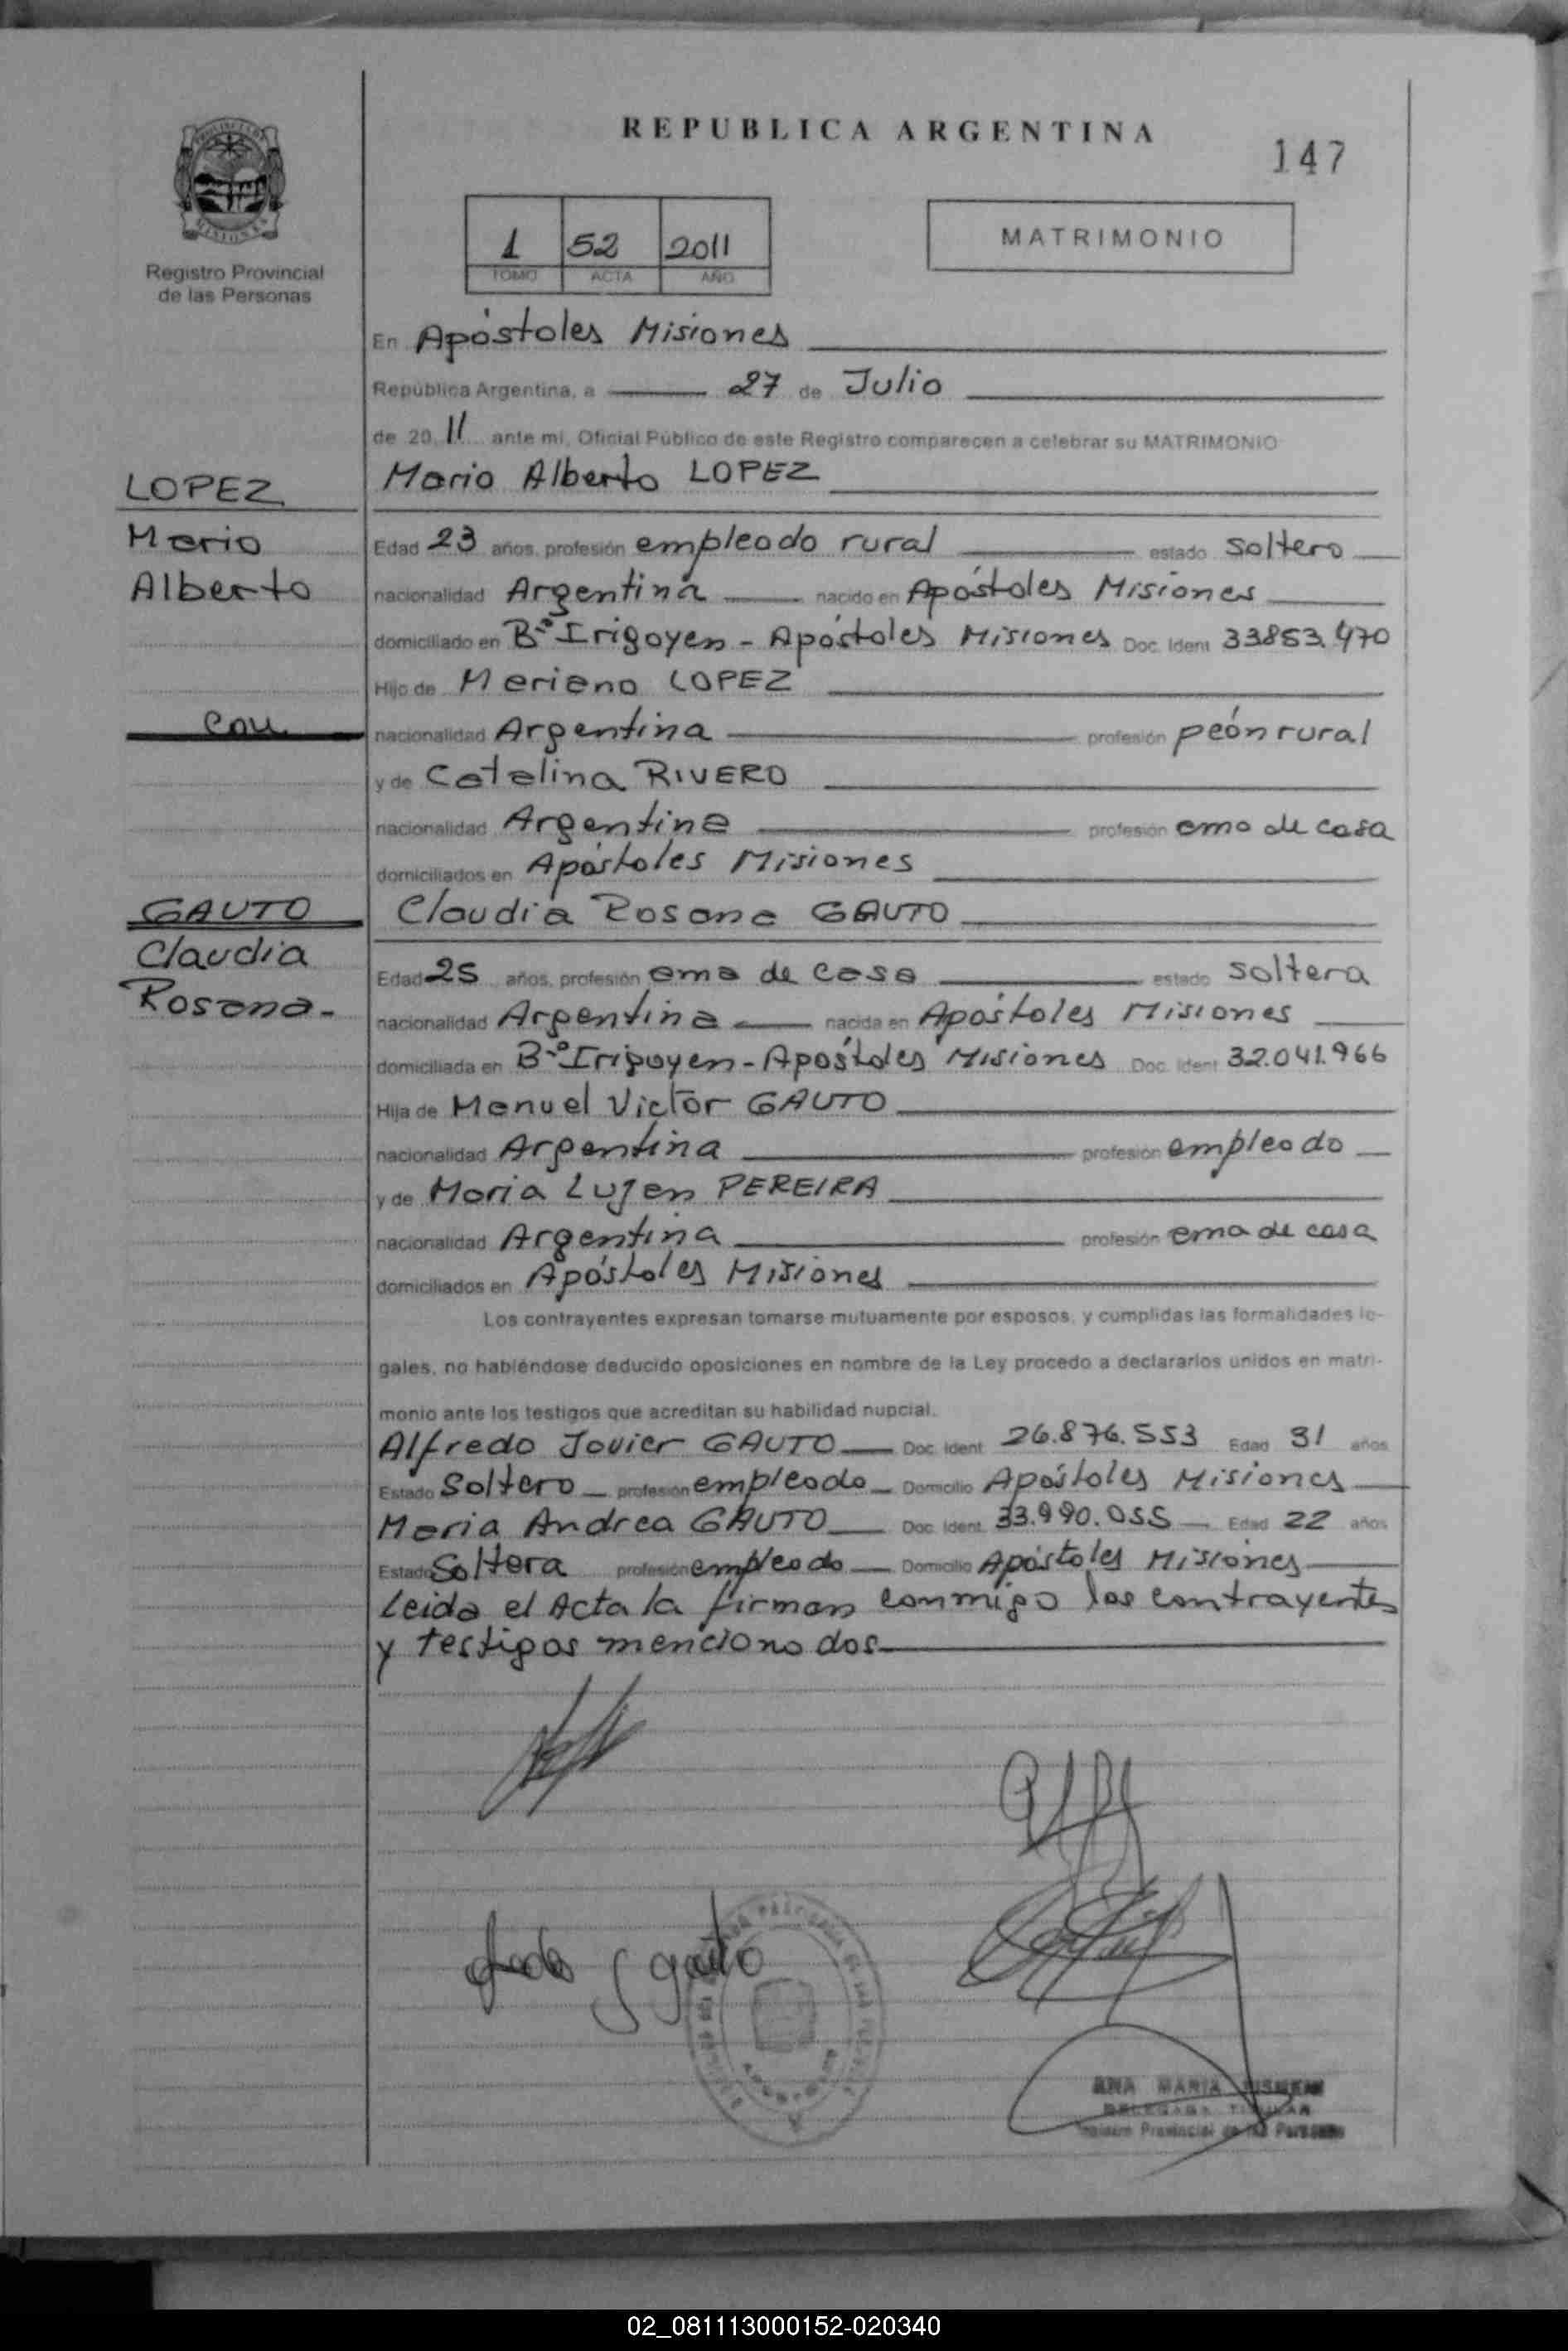 REPUBLICA ARGENTINA
147
1 52 2011
TOMO ACTA AÑO
MATRIMONIO
Registro Provincial
de las Personas
En Apóstoles Misiones
República Argentina, a 27 de Julio
de 20 11 ante mi, Oficial Público de este Registro comparecen a celebrar su MATRIMONIO
LOPEZ
Mario Alberto LOPEZ
Mario
Edad 23 años, profesión empleado rural estado soltero
Alberto
nacionalidad Argentina nacido en Apóstoles Misiones
domiciliado en Bº Irigoyen - Apóstoles Misiones Doc. Ident 33853.470
Hijo de Mariano LOPEZ
con
nacionalidad Argentina profesión peón rural
y de Catalina RIVERO
nacionalidad Argentina profesión ama de casa
domiciliados en Apóstoles Misiones
GAUTO
Claudia Rosana GAUTO
Claudia
Edad 25 años, profesión ama de casa estado soltera
Rosana.-
nacionalidad Argentina nacida en Apóstoles Misiones
domiciliada en Bº Irigoyen - Apóstoles Misiones Doc. Ident 32.041.966
Hija de Manuel Victor GAUTO
nacionalidad Argentina profesión empleado
y de Maria Lujan PEREIRA
nacionalidad Argentina profesión ama de casa
domiciliados en Apóstoles Misiones
Los contrayentes expresan tomarse mutuamente por esposos, y cumplidas las formalidades le-
gales, no habiéndose deducido oposiciones en nombre de la Ley procedo a declararlos unidos en matri-
monio ante los testigos que acreditan su habilidad nupcial.
Alfredo Javier GAUTO Doc. Ident 26.876.553 Edad 31 años
Estado Soltero profesión empleado Domicilio Apóstoles Misiones
Maria Andrea GAUTO Doc. Ident 33.990.055 Edad 22 años
Estado Soltera profesión empleada Domicilio Apóstoles Misiones
Leida el Acta la firman conmigo los contrayentes
y testigos mencionados
gauto
ANA MARIA
DELEGADA TITULAR
Registro Provincial de las Personas
02_081113000152-020340